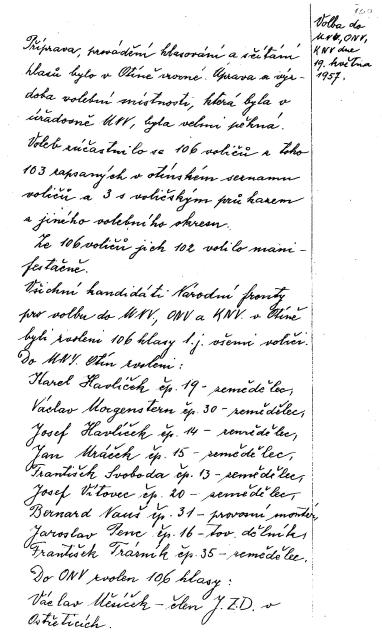 Volba do
MNV, ONV,
KNV dne
19. května
1957.
Příprava, provádění hlasování a sčítání
hlasů bylo v Otíně vzorné. Úprava a výz-
doba volební místnosti, která byla v
úřadovně MNV, byla velmi pěkná.
Voleb zúčastnilo se 106 voličů z toho
103 zapsaných v otínském seznamu
voličů a 3 s voličským průkazem
z jiného volebního okresu.
Ze 106 voličů jich 102 volilo mani-
festačně.
Všichni kandidáti Národní fronty
pro volbu do MNV, ONV a KNV v Otíně
byli zvoleni 106 hlasy t.j. všemi voliči.
Do MNV. Otín zvoleni:
Karel Havlíček čp. 19 - zemědělec,
Václav Morgenstern čp. 30 - zemědělec,
Josef Havlíček čp. 14 - zemědělec,
Jan Mráček čp. 15 - zemědělec,
František Svoboda čp. 13 - zemědělec,
Josef Vítovec čp. 20 - zemědělec,
Bernard Vauš čp. 31 - provozní montér,
Jaroslav Penc čp. 16 - tov. dělník,
František Trázník čp. 35 - zemědělec.
Do ONV zvolen 106 hlasy:
Václav - člen J.Z.D. v
Ostřeticích.